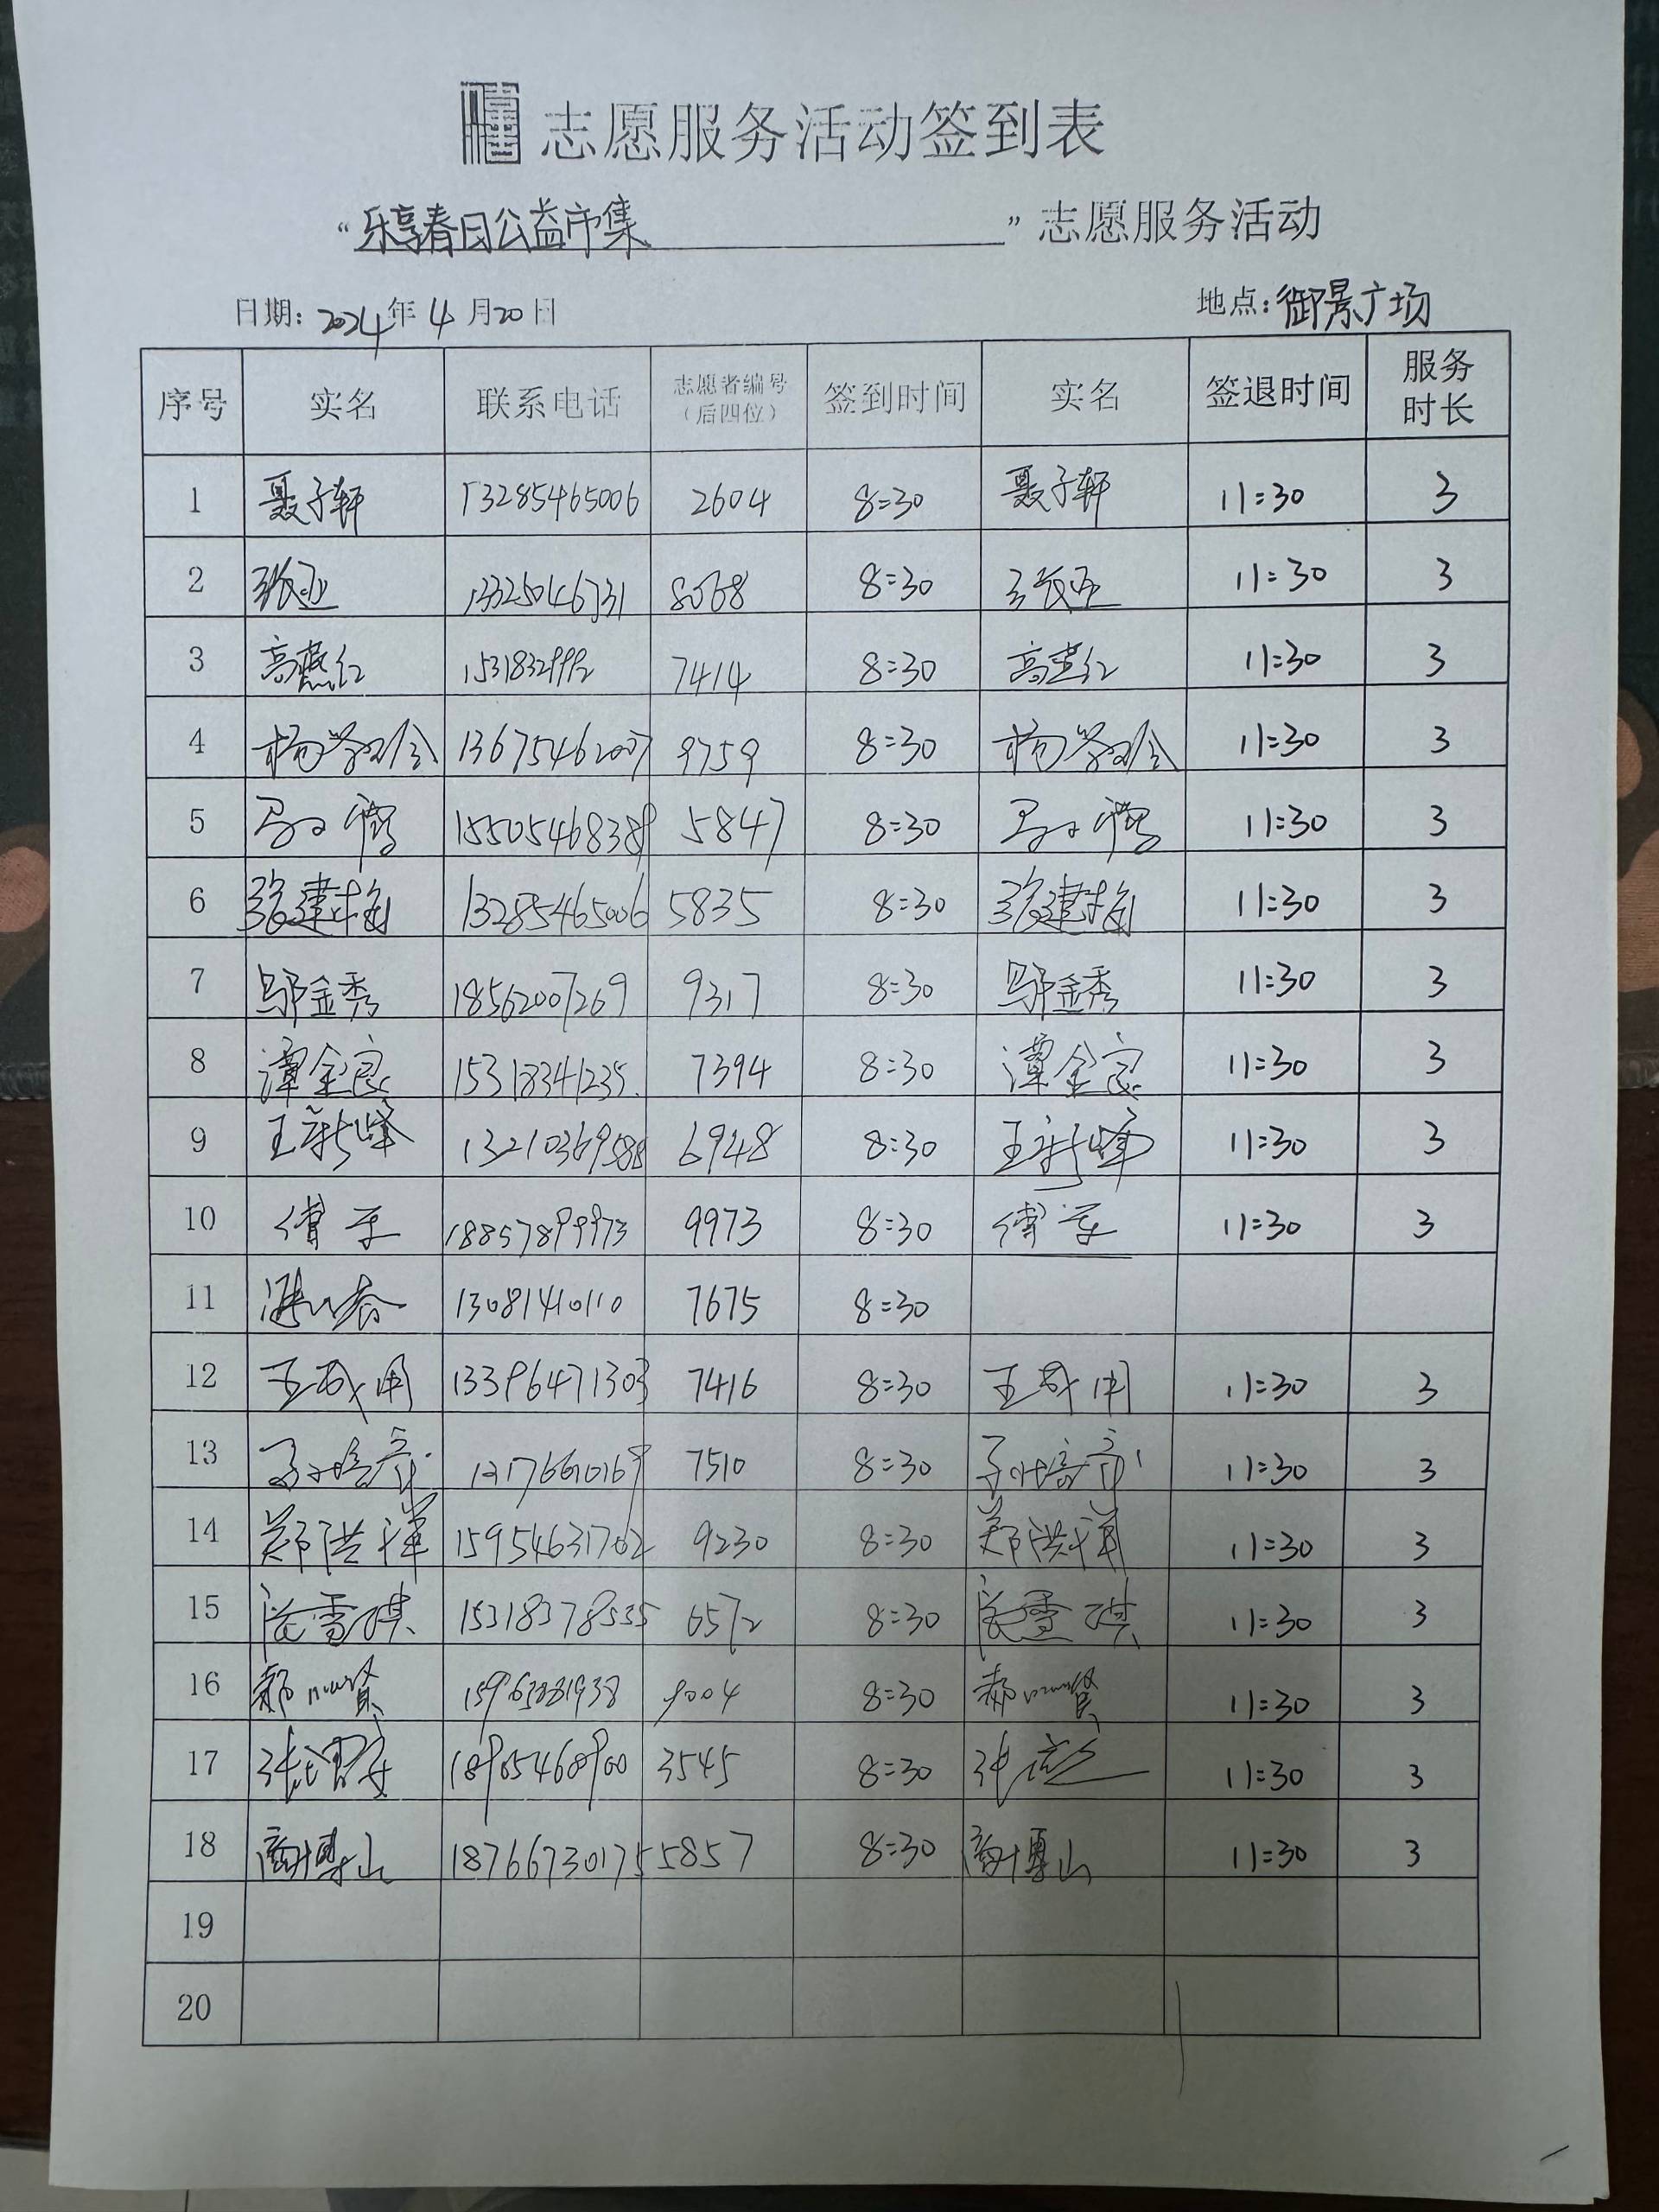 志愿服务活动签到表
“乐享春日公益市集”志愿服务活动
日期：2024年4月20日 地点：御景广场
序号 实名 联系电话 志愿者编号（后四位） 签到时间 实名 签退时间 服务时长
1 聂子轩 13285465006 2604 8:30 聂子轩 11:30 3
2 张亚 13325046731 8:30 张亚 11:30 3
3 高燕红 7414 8:30 高燕红 11:30 3
4 13675462007 9759 8:30 11:30 3
5 15505468389 5847 8:30 11:30 3
6 张建梅 13285465006 5835 8:30 张建梅 11:30 3
7 邬金秀 18562007269 9317 8:30 邬金秀 11:30 3
8 谭金良 15318341235 7394 8:30 谭金良 11:30 3
9 王新峰 13210369588 6948 8:30 王新峰 11:30 3
10 18857899973 9973 8:30 11:30 3
11 13081410110 7675 8:30
12 13396471303 7416 8:30 11:30 3
13 7510 8:30 11:30 3
14 郑洪祥 15954631702 9230 8:30 郑洪祥 11:30 3
15 15318378535 6572 8:30 11:30 3
16 9004 8:30 11:30 3
17 18905468900 3545 8:30 11:30 3
18 商博山 18766730175 5857 8:30 商博山 11:30 3
19
20